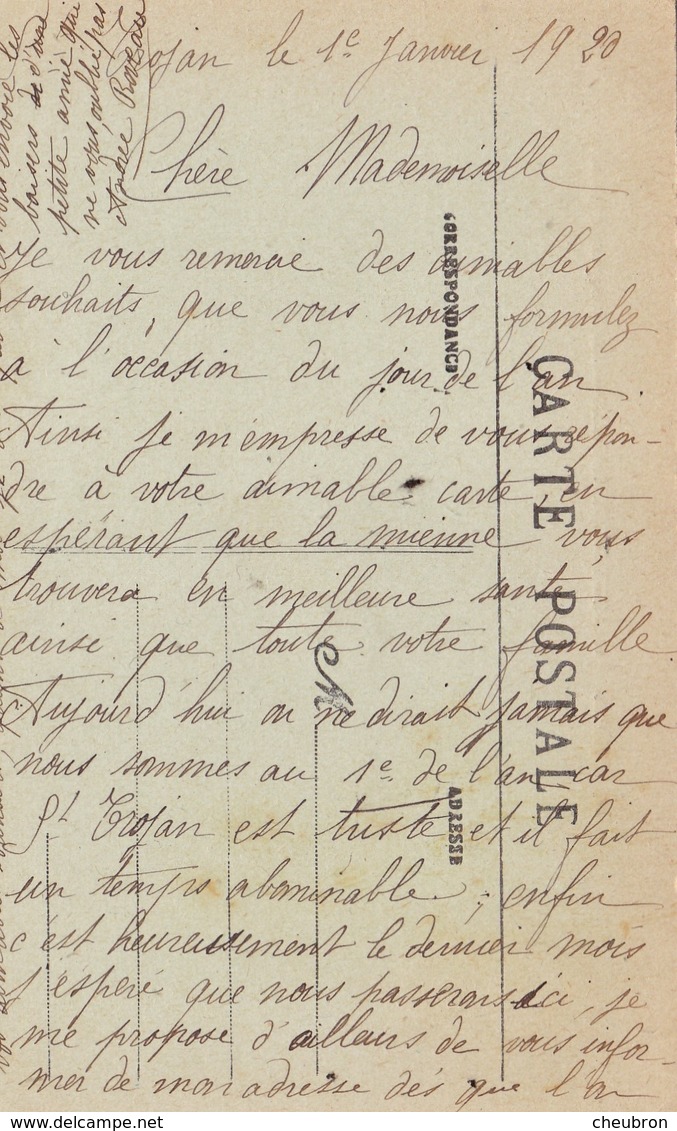 Trojan le 1e Janvier 1920
Chère Mademoiselle
Je vous remercie des aimables
souhaits, que vous nous formulez
à l'occasion du jour de l'an
Ainsi je m'empresse de vous répon-
dre à votre aimable carte en
espérant que la mienne vous
trouvera en meilleure santé
ainsi que toute votre famille
Aujourd'hui on ne dirait jamais que
nous sommes au 1e de l'an car
St Trojan est triste et il fait
un temps abominable, enfin
c'est heureusement le dernier mois
j'espére que nous passerons ici, je
me propose d'ailleurs de vous infor-
mer de mon adresse dés que l'on
vous envoie les
baisers d'une
petite amie qui
ne vous oublie pas
Andrée
CARTE POSTALE
CORRESPONDANCE
ADRESSE
M
cheubron